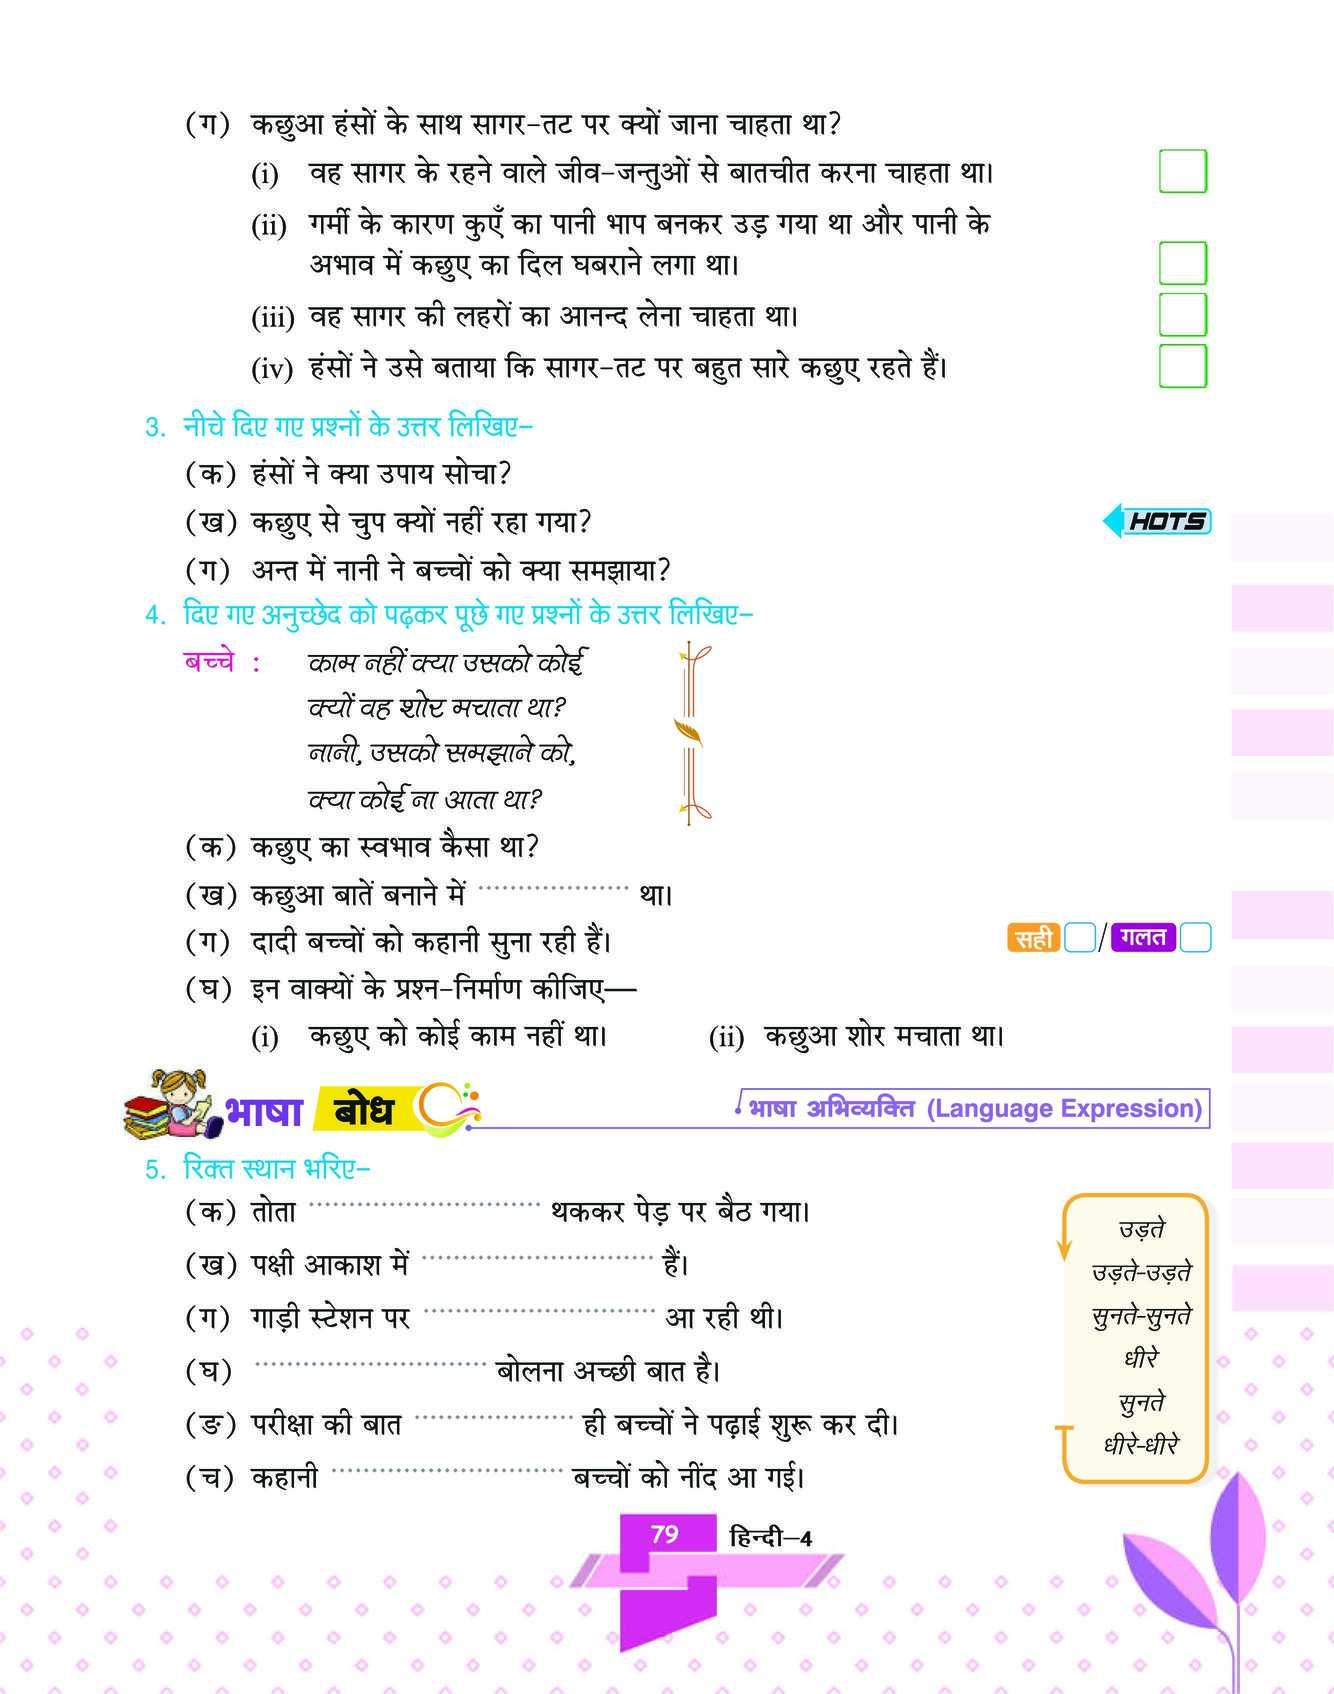 (ग) कछुआ हंसों के साथ सागर-तट पर क्यों जाना चाहता था?
(i) वह सागर के रहने वाले जीव-जन्तुओं से बातचीत करना चाहता था।
(ii) गर्मी के कारण कुएँ का पानी भाप बनकर उड़ गया था और पानी के
अभाव में कछुए का दिल घबराने लगा था।
(iii) वह सागर की लहरों का आनन्द लेना चाहता था।
(iv) हंसों ने उसे बताया कि सागर-तट पर बहुत सारे कछुए रहते हैं।
3. नीचे दिए गए प्रश्नों के उत्तर लिखिए-
(क) हंसों ने क्या उपाय सोचा?
(ख) कछुए से चुप क्यों नहीं रहा गया? HOTS
(ग) अन्त में नानी ने बच्चों को क्या समझाया?
4. दिए गए अनुच्छेद को पढ़कर पूछे गए प्रश्नों के उत्तर लिखिए-
बच्चे : काम नहीं क्या उसको कोई
क्यों वह शोर मचाता था?
नानी, उसको समझाने को,
क्या कोई ना आता था?
(क) कछुए का स्वभाव कैसा था?
(ख) कछुआ बातें बनाने में ................... था।
(ग) दादी बच्चों को कहानी सुना रही हैं। सही / गलत
(घ) इन वाक्यों के प्रश्न-निर्माण कीजिए—
(i) कछुए को कोई काम नहीं था। (ii) कछुआ शोर मचाता था।
भाषा बोध भाषा अभिव्यक्ति (Language Expression)
5. रिक्त स्थान भरिए-
(क) तोता ............................. थककर पेड़ पर बैठ गया।
(ख) पक्षी आकाश में ............................. हैं।
(ग) गाड़ी स्टेशन पर ............................. आ रही थी।
(घ) ............................. बोलना अच्छी बात है।
(ङ) परीक्षा की बात .................... ही बच्चों ने पढ़ाई शुरू कर दी।
(च) कहानी ............................. बच्चों को नींद आ गई।
उड़ते
उड़ते-उड़ते
सुनते-सुनते
धीरे
सुनते
धीरे-धीरे
79 हिन्दी-4